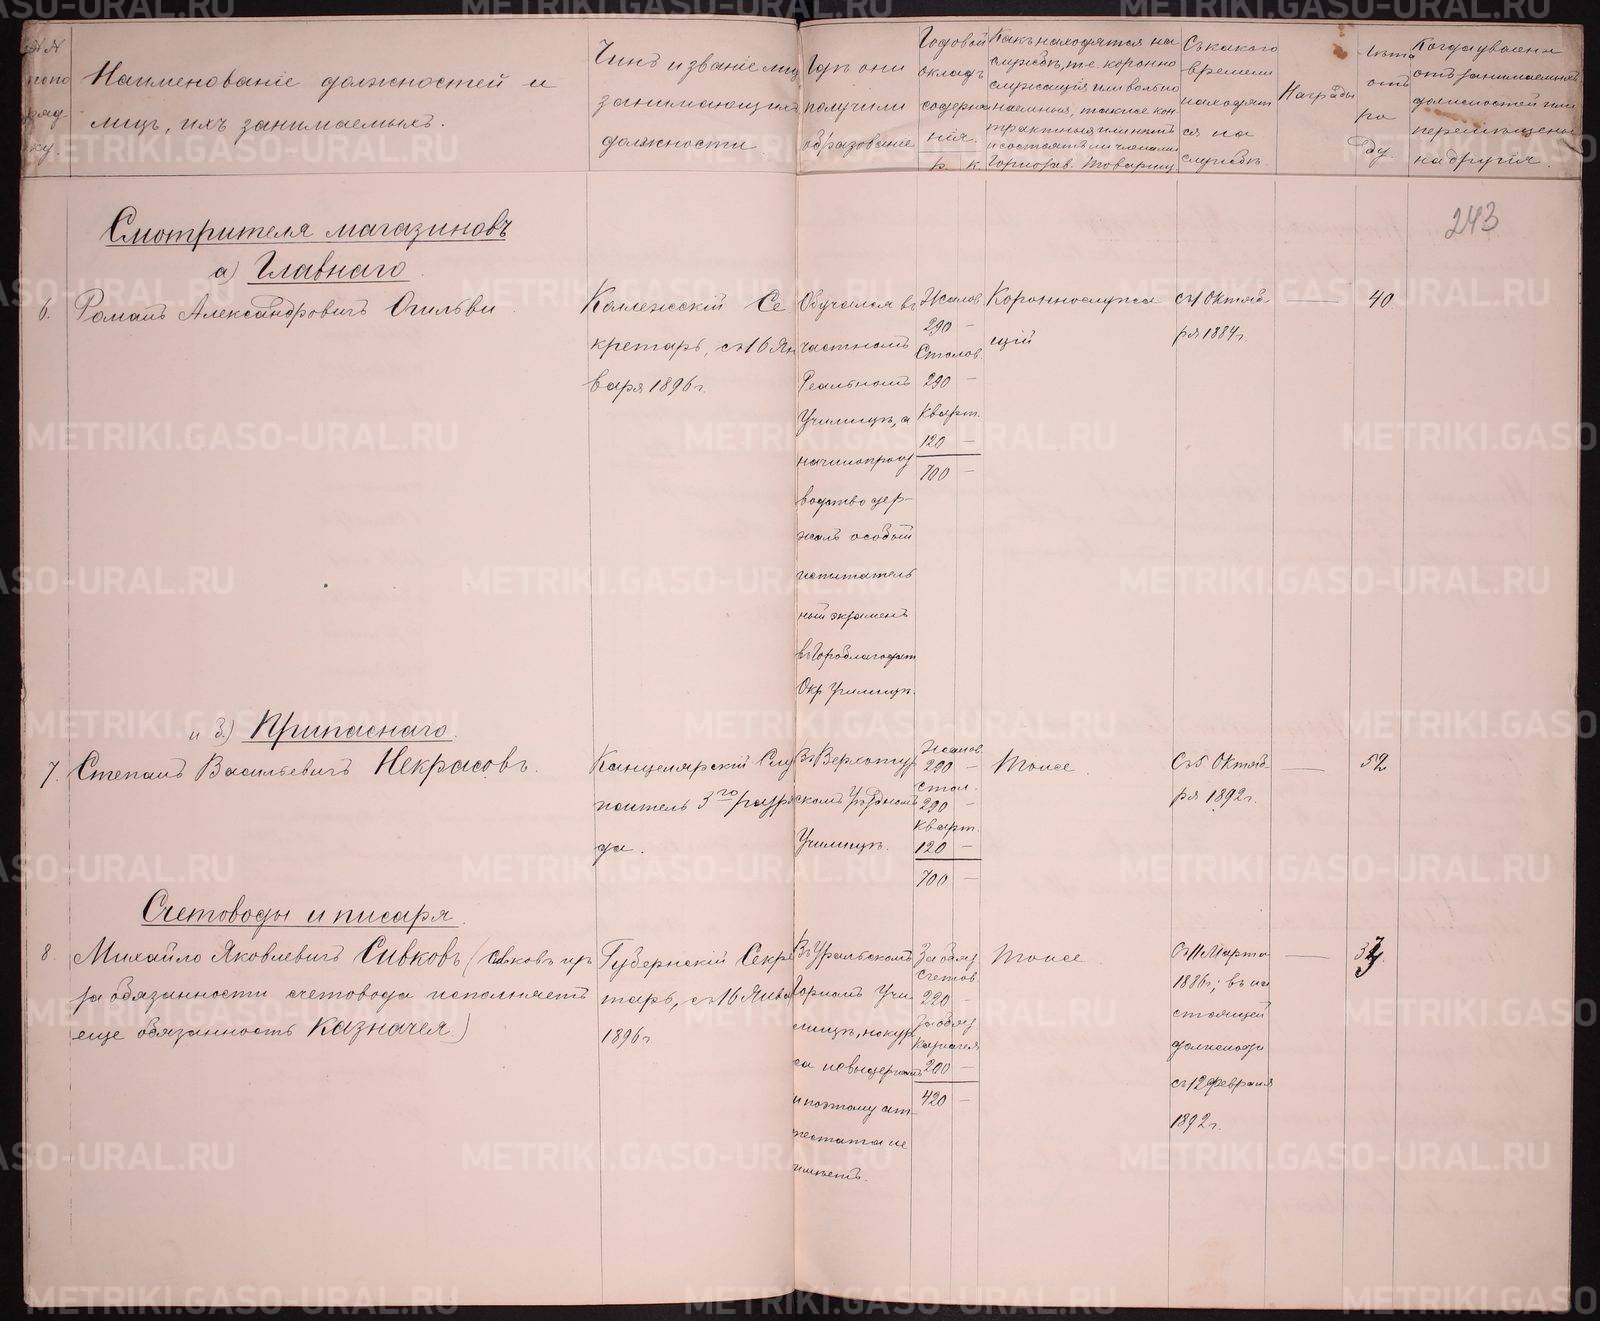 №№ по поряд- ку
Наименованіе должностей и
лицъ, ихъ занимаемыхъ.
Чинъ и званіе лиц
занимающихъ
должности.
Гдѣ они
получили
образованіе
Годовой
окладъ
содержа
нія.
р. к.
Какъ находятся на
службѣ, т.е. коронно
служащія или вольно
наемныя, также кон
трактныя или нѣтъ
и состоятъ ли членами
Горнозав. Товарищ.
Съ какого
времени
находят
ся на
службѣ.
Награды
Лѣта
отъ
ро
ду.
Когда уволены
отъ занимаемыхъ
должностей или
перемѣщены
на другія.
243
Смотрителя магазиновъ
а) Главнаго
6. Романъ Александровичъ Огильви
Коллежскій Се
кретарь, съ 16 Ян
варя 1896 г.
Обучался въ
частномъ
Реальномъ
Училищѣ, а
на чинопроиз
водство дер-
жалъ особый
испытатель
ный экзаменъ
въ Гороблагодат
Окр. Училищѣ.
Жалов.
290 —
Столов.
290 —
Кварт.
120 —
700 —
Короннослужа
щій
съ 1 Октяб-
ря 1884 г.
—
40.
и з.) Припаснаго.
7. Степанъ Васильевичъ Некрасовъ.
Канцелярскій Слу
житель 3го разря
да.
Въ Верхотур
скомъ Уѣздномъ
Училищѣ.
Жалов.
290 —
Стол.
290 —
Кварт.
120 —
700 —
Тоже.
Съ 5 Октяб-
ря 1892 г.
—
52
Счетоводы и писаря.
8. Михайло Яковлевичъ Сивковъ (Сивковъ пр
за обязанности счетовода исполняетъ
еще обязанность Казначея)
Губернскій Секре
тарь, съ 16 Янва
1896 г.
Въ Уральскомъ
Горномъ Учи
лищѣ, но кур
са не выдержалъ
и поэтому ат-
тестата не
имѣетъ.
За обяз
счетов
220 —
За обяз
Казначея
200 —
420 —
Тоже.
Съ 11 Марта
1886 г., въ на
стоящей
должности
съ 12 февраля
1892 г.
—
METRIKI.GASO-URAL.RU